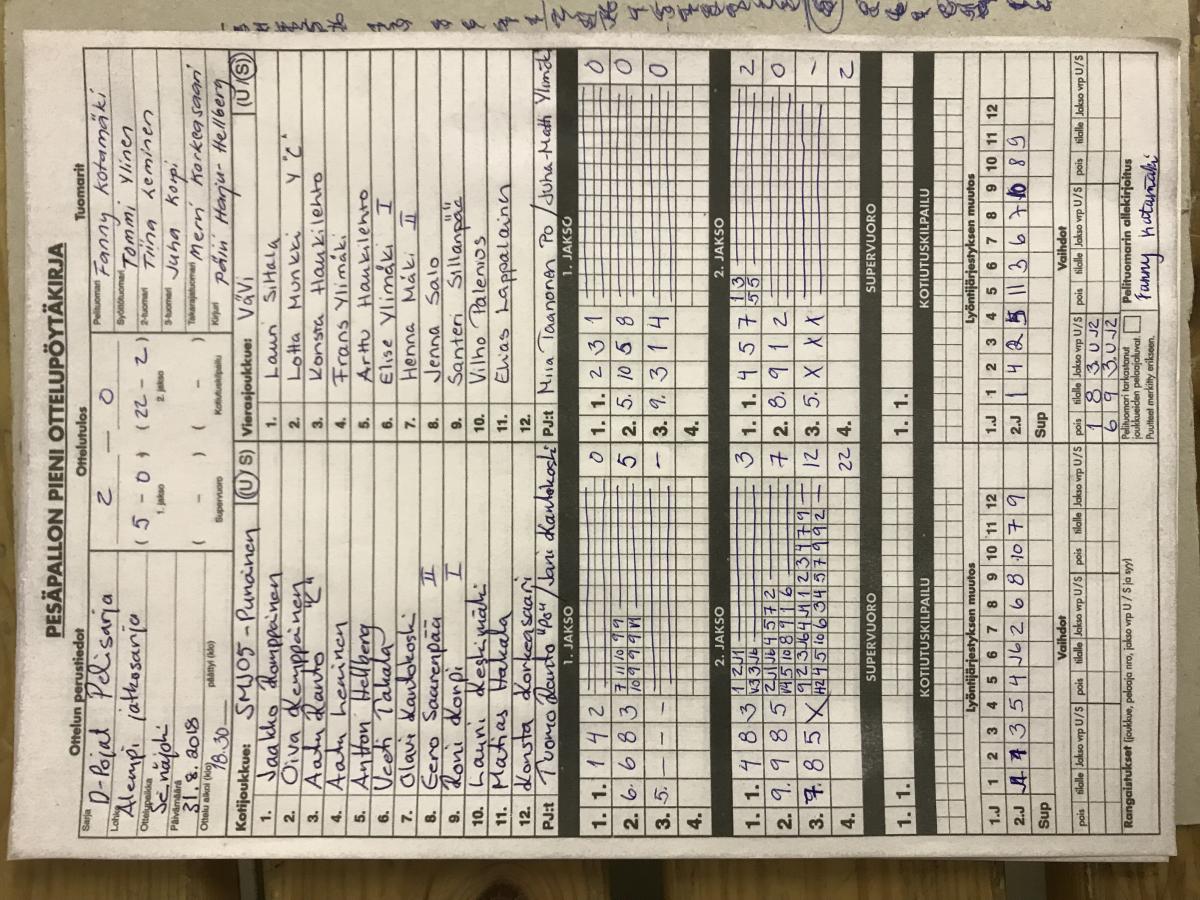 PESÄPALLON PIENI OTTELUPÖYTÄKIRJA
Ottelun perustiedot
Sarja D-Pojat Pelisarja
Lohko Alempi jatkosarja
Ottelupaikka Seinäjoki
Päivämäärä 31.8.2018
Ottelu alkoi (klo) 18.30 päättyi (klo)
Ottelutulos
2 — 0
( 5 - 0 ) ( 22 - 2 )
1. jakso 2. jakso
( - ) ( - )
Supervuoro Kotiutuskilpailu
Tuomarit
Pelituomari Fanny Kotamäki
Syöttötuomari Tommi Ylinen
2-tuomari Tiina Leminen
3-tuomari Juha Korpi
Takarajatuomari Mervi Korkeasaari
Kirjuri Päivi Harju-Hellberg
Kotijoukkue: SMJ05-Punainen (U/S)
1. Jaakko Romppainen
2. Oiva Kemppainen
3. Aatu Rauto "K"
4. Aatu Leminen
5. Anton Hellberg
6. Veeti Takala
7. Olavi Kautokoski
8. Eero Saarenpää II
9. Roni Korpi I
10. Lauri Keskimäki
11. Matias Hakala
12. Konsta Korkeasaari
PJ:t Tuomo Rauto "Po" / Jani Kautokoski
Vierasjoukkue: VäVi (U/S)
1. Lauri Siltala
2. Lotta Munkki Y "C"
3. Konsta Haukilehto
4. Frans Ylimäki
5. Arttu Haukilehto
6. Elise Ylimäki I
7. Henna Mäki II
8. Jenna Salo
9. Santeri Sillanpää
10. Vilho Palenius
11. Elias Lappalainen
12.
PJ:t Miia Taanonen Po / Juha-Matti Ylimäki
1. JAKSO
1. 1. 1 4 2 0
2. 6. 6 8 3 7 11 11 10 9 9 5
3. 5. - - - -
4.
1. JAKSO
1. 1. 2 3 1 0
2. 5. 10 5 8 0
3. 9. 3 1 4 0
4.
2. JAKSO
1. 1. 4 8 3 3
2. 9. 9 8 5 7
3. 7. 8 5 X 12
4. 22
2. JAKSO
1. 1. 4 5 7 1 3 2
5 5
2. 8. 9 1 2 0
3. 5. X X X -
4. 2
SUPERVUORO
1. 1.
SUPERVUORO
1. 1.
KOTIUTUSKILPAILU
KOTIUTUSKILPAILU
Lyöntijärjestyksen muutos
1 2 3 4 5 6 7 8 9 10 11 12
1.J
2.J 3 5 4 2 6 8 10 7 9
Sup
Lyöntijärjestyksen muutos
1 2 3 4 5 6 7 8 9 10 11 12
1.J
2.J 1 4 2 5 11 3 6 7 10 8 9
Sup
Vaihdot
pois tilalle Jakso vrp U / S pois tilalle Jakso vrp U / S pois tilalle Jakso vrp U / S
Vaihdot
pois tilalle Jakso vrp U / S pois tilalle Jakso vrp U / S pois tilalle Jakso vrp U / S
1 8 3. U J2
6 9 3. U J2
Rangaistukset (joukkue, pelaaja nro, jakso vrp U / S ja syy)
Pelituomari tarkastanut joukkueiden pelaajaluvat.
Puutteet merkitty erikseen.
Pelituomarin allekirjoitus
Fanny Kotamäki